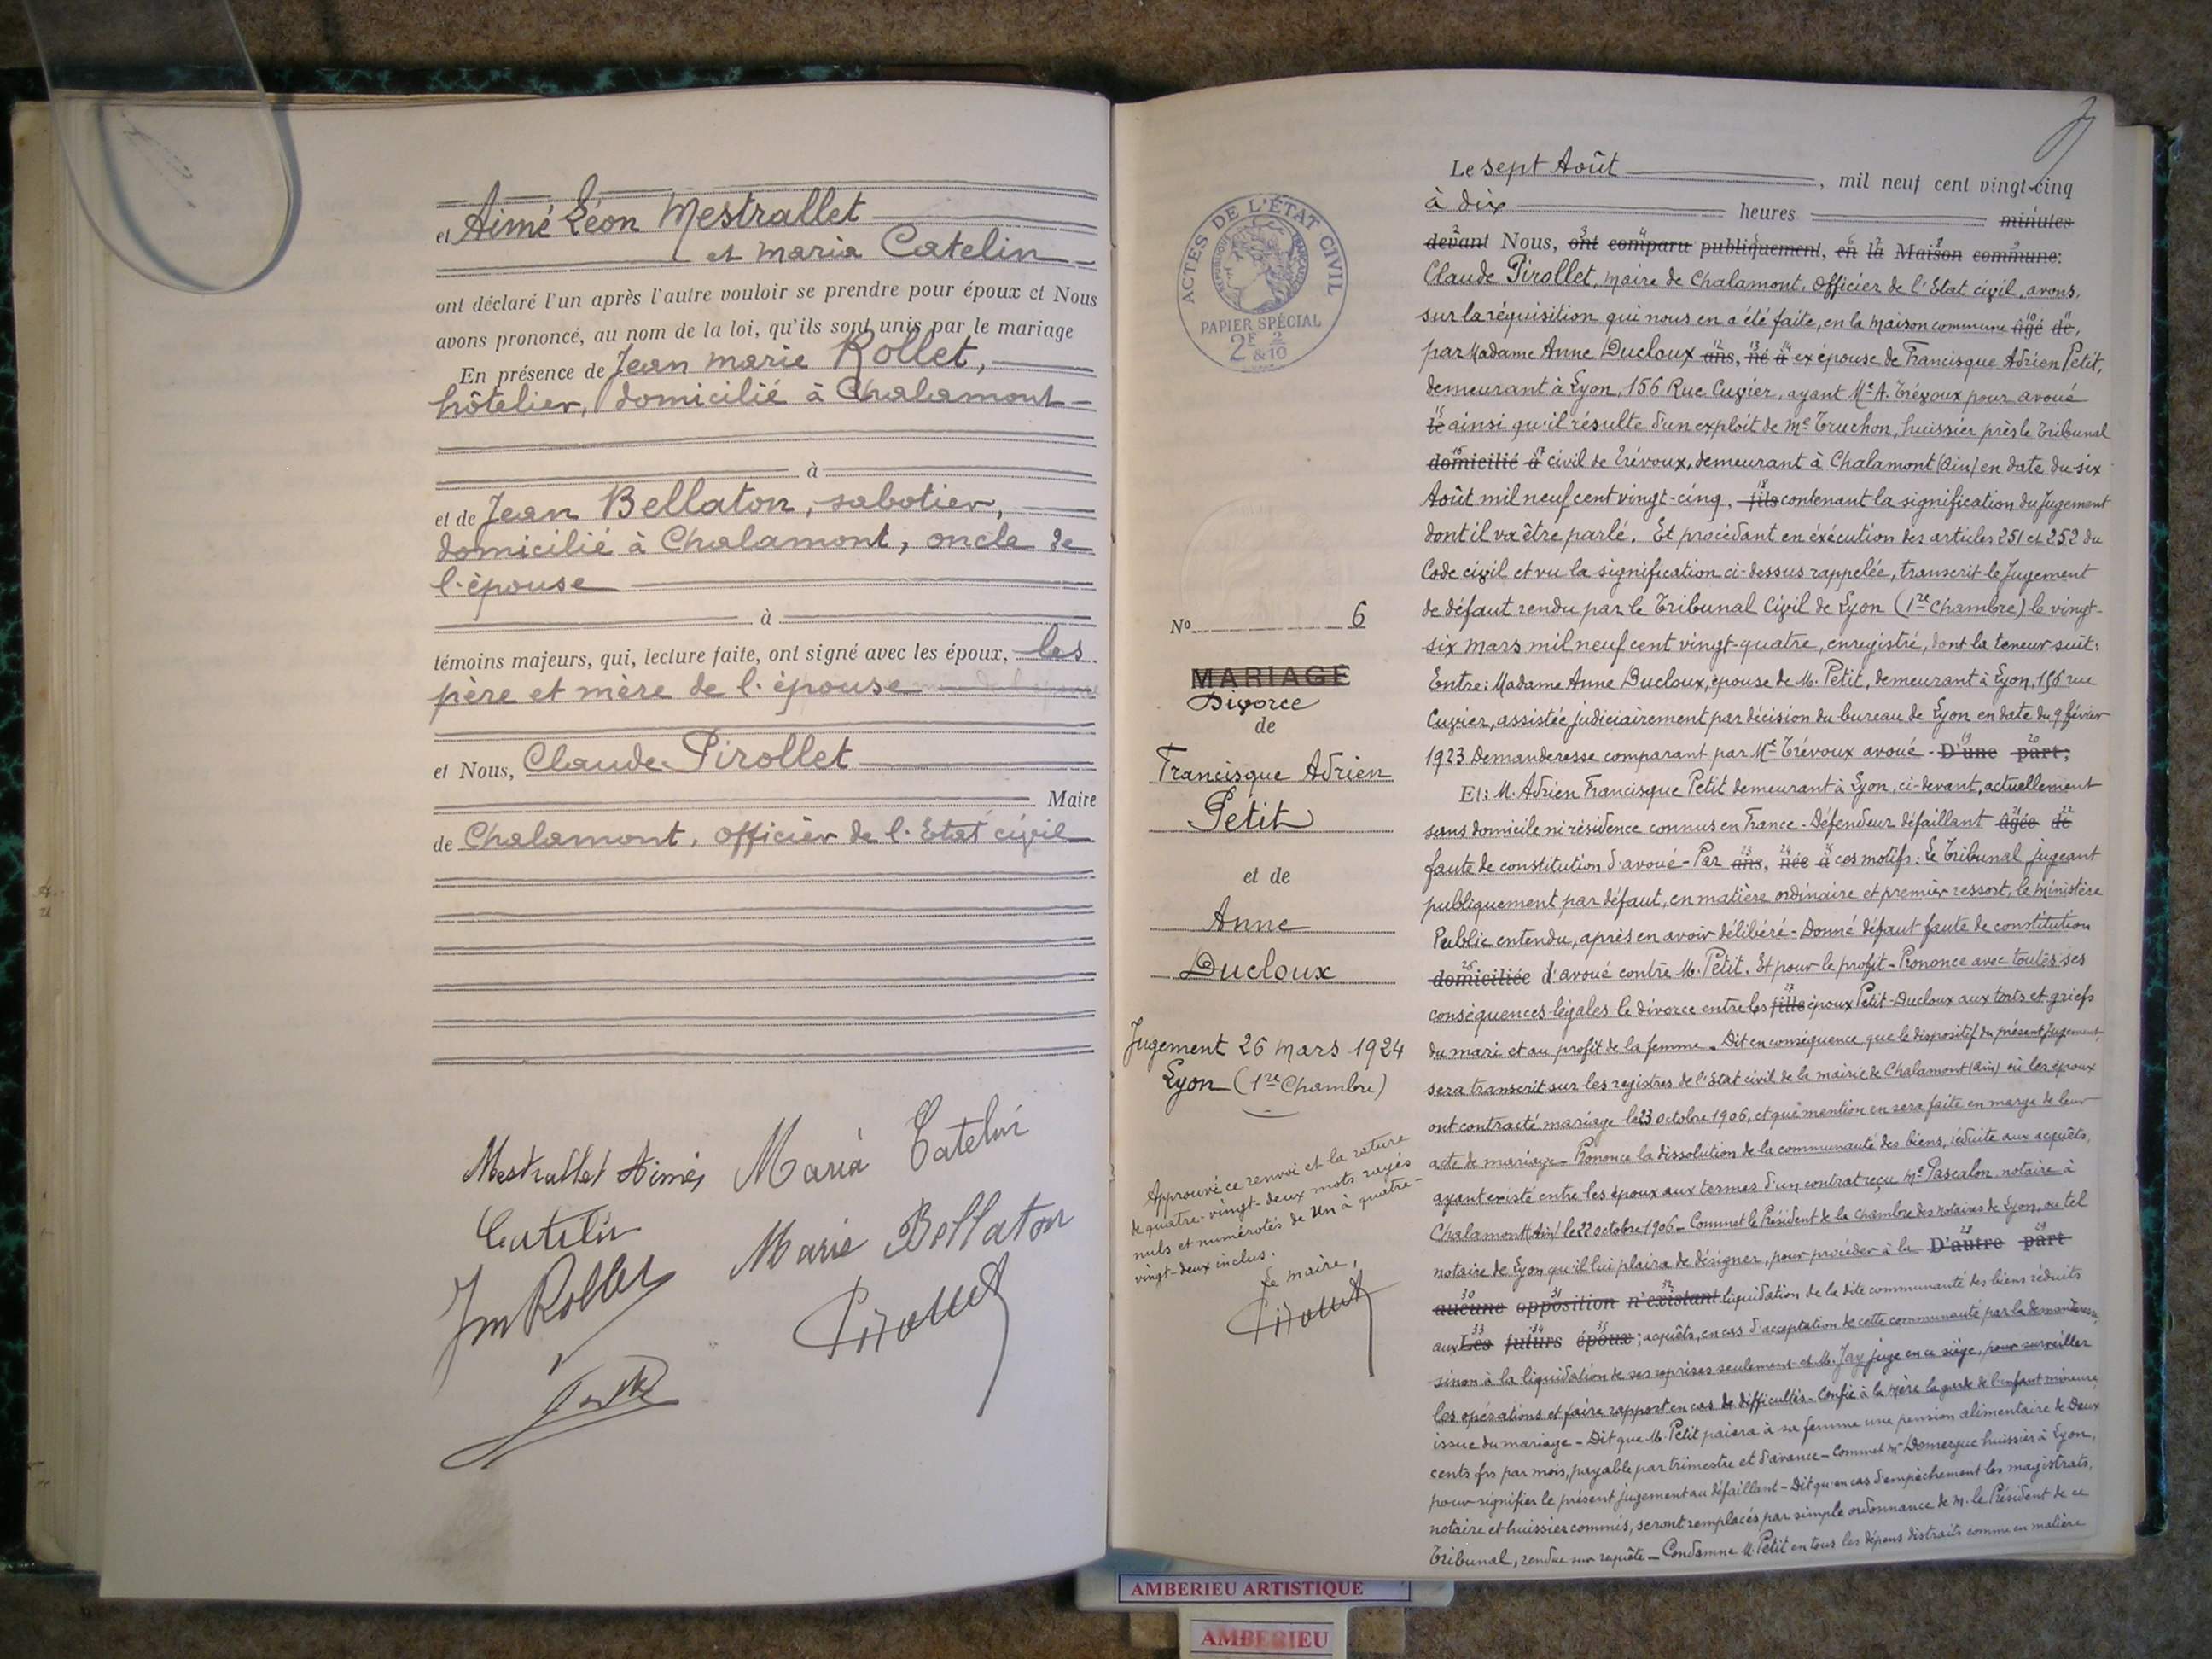 et Aimé Léon Mestrallet
et Maria Catelin
ont déclaré l'un après l'autre vouloir se prendre pour époux et Nous
avons prononcé, au nom de la loi, qu'ils sont unis par le mariage
En présence de Jean Marie Rollet,
hôtelier, domicilié à Chalamont
à
et de Jean Bellaton, sabotier,
domicilié à Chalamont, oncle de
l'épouse
à
témoins majeurs, qui, lecture faite, ont signé avec les époux, les
père et mère de l'épouse
et Nous, Claude Pirollet
Maire
de Chalamont, Officier de l'Etat civil
Mestrallet Aimé Maria Catelin
Catelin
Marie Bellaton
Jm Rollet
Pirollet
ACTES DE L'ÉTAT CIVIL
PAPIER SPÉCIAL
2E 2/10
&
No 6
MARIAGE
Divorce
de
Francisque Adrien
Petit
et de
Anne
Ducloux
Jugement 26 Mars 1924
Lyon (1re Chambre)
Approuvé ce renvoi et la rature
de quatre-vingt-deux mots rayés
nuls et numérotés de un à quatre-
vingt-deux inclus.
Le maire,
Pirollet
Le sept Août, mil neuf cent vingt-cinq
à dix heures minutes
devant Nous, ont comparu publiquement, en la Maison commune:
Claude Pirollet, maire de Chalamont, Officier de l'Etat civil, avons,
sur la réquisition qui nous en a été faite, en la maison commune âgé de,
par Madame Anne Ducloux ans, né à ex épouse de Francisque Adrien Petit,
demeurant à Lyon, 156 Rue Cuvier, ayant Me A. Trévoux pour avoué
le ainsi qu'il résulte d'un exploit de Me Truchon, huissier près le Tribunal
domicilié à civil de Trévoux, demeurant à Chalamont (Ain) en date du six
Août mil neuf cent vingt-cinq, fils contenant la signification du Jugement
dont il va être parlé. Et procédant en éxécution des articles 251 et 252 du
Code civil et vu la signification ci-dessus rappelée, transcrit le Jugement
de défaut rendu par le Tribunal Civil de Lyon (1re Chambre) le vingt-
six mars mil neuf cent vingt-quatre, enregistré, dont la teneur suit:
Entre: Madame Anne Ducloux, épouse de M. Petit, demeurant à Lyon, 156 rue
Cuvier, assistée judiciairement par décision du bureau de Lyon en date du 9 février
1923 Demanderesse comparant par Me Trévoux avoué - D'une part;
Et: M. Adrien Francisque Petit demeurant à Lyon, ci-devant, actuellement
sans domicile ni résidence connus en France - Défendeur défaillant âgée de
faute de constitution d'avoué - Par ans, née à ces motifs: Le Tribunal jugeant
publiquement par défaut, en matière ordinaire et premier ressort, le ministère
Public entendu, après en avoir délibéré - Donné défaut faute de constitution
domiciliée d'avoué contre M. Petit. Et pour le profit - Prononce avec toutes ses
conséquences légales le divorce entre les fille époux Petit-Ducloux aux torts et griefs
du mari et au profit de la femme - Dit en conséquence que le dispositif du présent jugement
sera transcrit sur les registres de l'Etat civil de la mairie de Chalamont (Ain) où les époux
ont contracté mariage le 23 octobre 1906, et que mention en sera faite en marge de leur
acte de mariage - Prononce la dissolution de la communauté des biens, réduite aux acquêts,
ayant existé entre les époux aux termes d'un contrat reçu Me Pascalon, notaire à
Chalamont (Ain) le 22 octobre 1906 - Commet le Président de la chambre des notaires de Lyon, ou tel
notaire de Lyon qu'il lui plaira de désigner, pour procéder à la D'autre part
aucune opposition n'existant liquidation de la dite communauté des biens réduits
aux Les futurs époux; acquêts, en cas d'acceptation de cette communauté par la demanderesse,
sinon à la liquidation de ses reprises seulement et M. Jay juge en ce siège, pour surveiller
les opérations et faire rapport en cas de difficultés - Confie à la mère la garde de l'enfant mineure
issue du mariage - Dit que M. Petit paiera à sa femme une pension alimentaire de Deux
cents frs par mois, payable par trimestre et d'avance - Commet Me Domergue huissier à Lyon,
pour signifier le présent jugement au défaillant - Dit qu'en cas d'empêchement les magistrats,
notaire et huissier commis, seront remplacés par simple ordonnance de M. le Président de ce
Tribunal, rendue sur requête - Condamne M. Petit en tous les dépens distraits comme en matière
AMBERIEU ARTISTIQUE
AMBERIEU